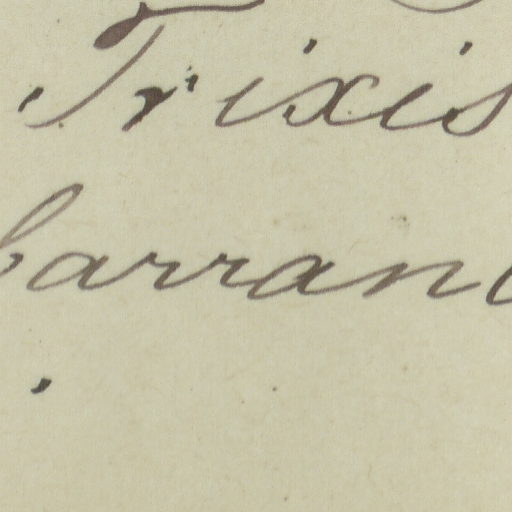 Trixis
barran